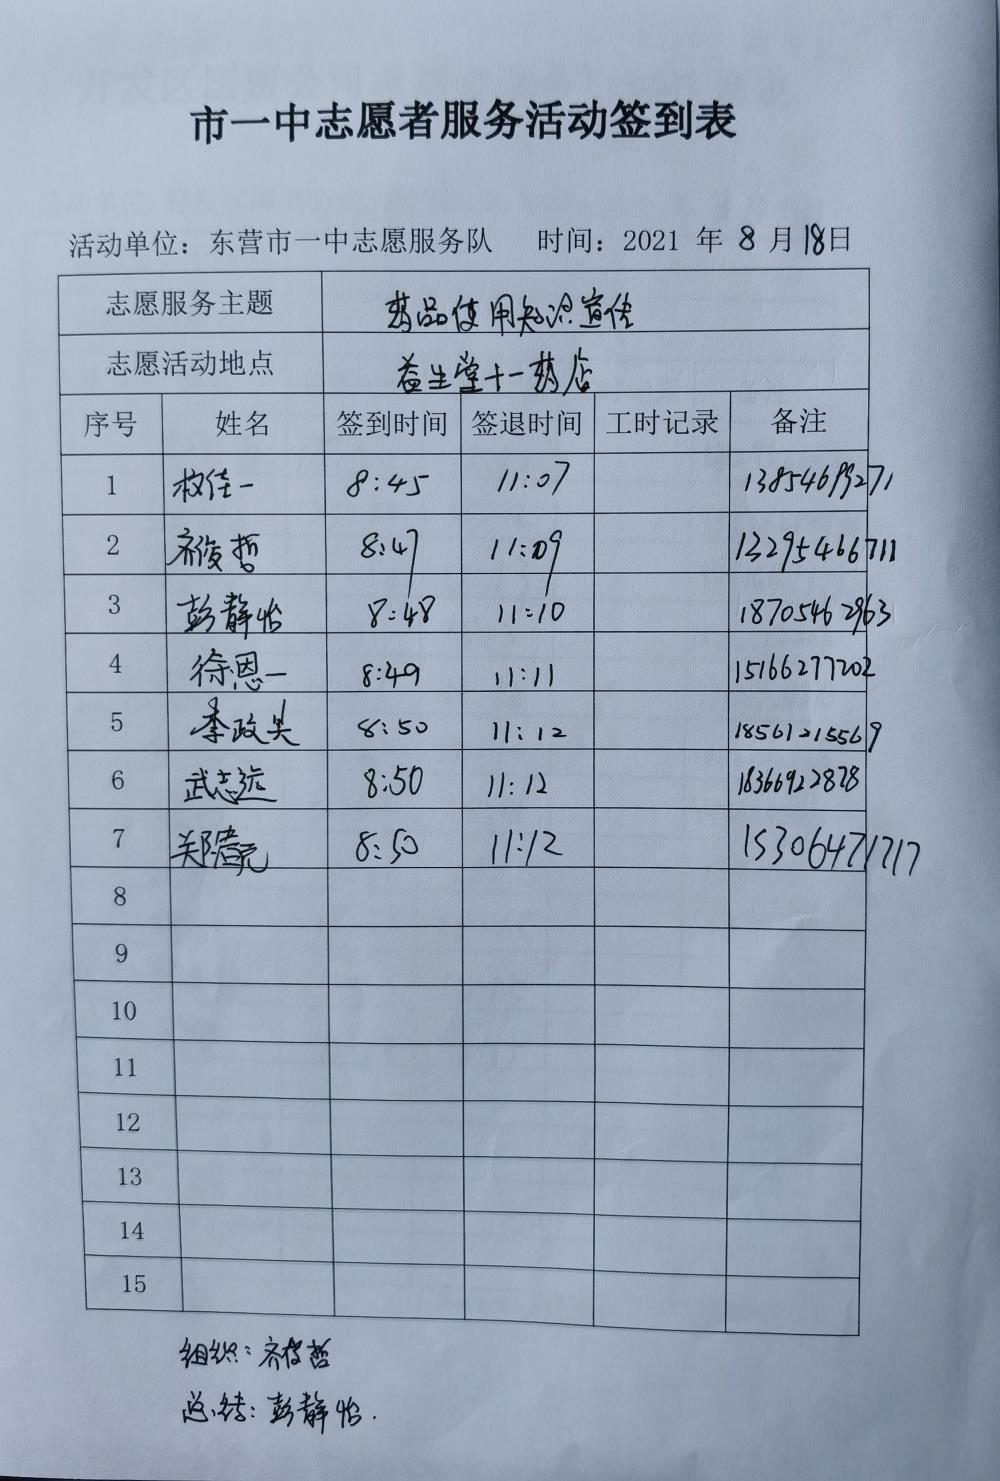 市一中志愿者服务活动签到表
活动单位：东营市一中志愿服务队 时间：2021 年 8 月 18日
志愿服务主题 药品使用知识宣传
志愿活动地点 益生堂十一药店
序号 姓名 签到时间 签退时间 工时记录 备注
1 权佳一 8:45 11:07 13854699271
2 齐俊哲 8:47 11:09 13295466711
3 彭静怡 8:48 11:10 18705462963
4 徐恩一 8:49 11:11 15166277202
5 李政昊 8:50 11:12 18561215569
6 武志远 8:50 11:12 18366922828
7 8:50 11:12 15306471717
8
9
10
11
12
13
14
15
组织：齐俊哲
总结：彭静怡.